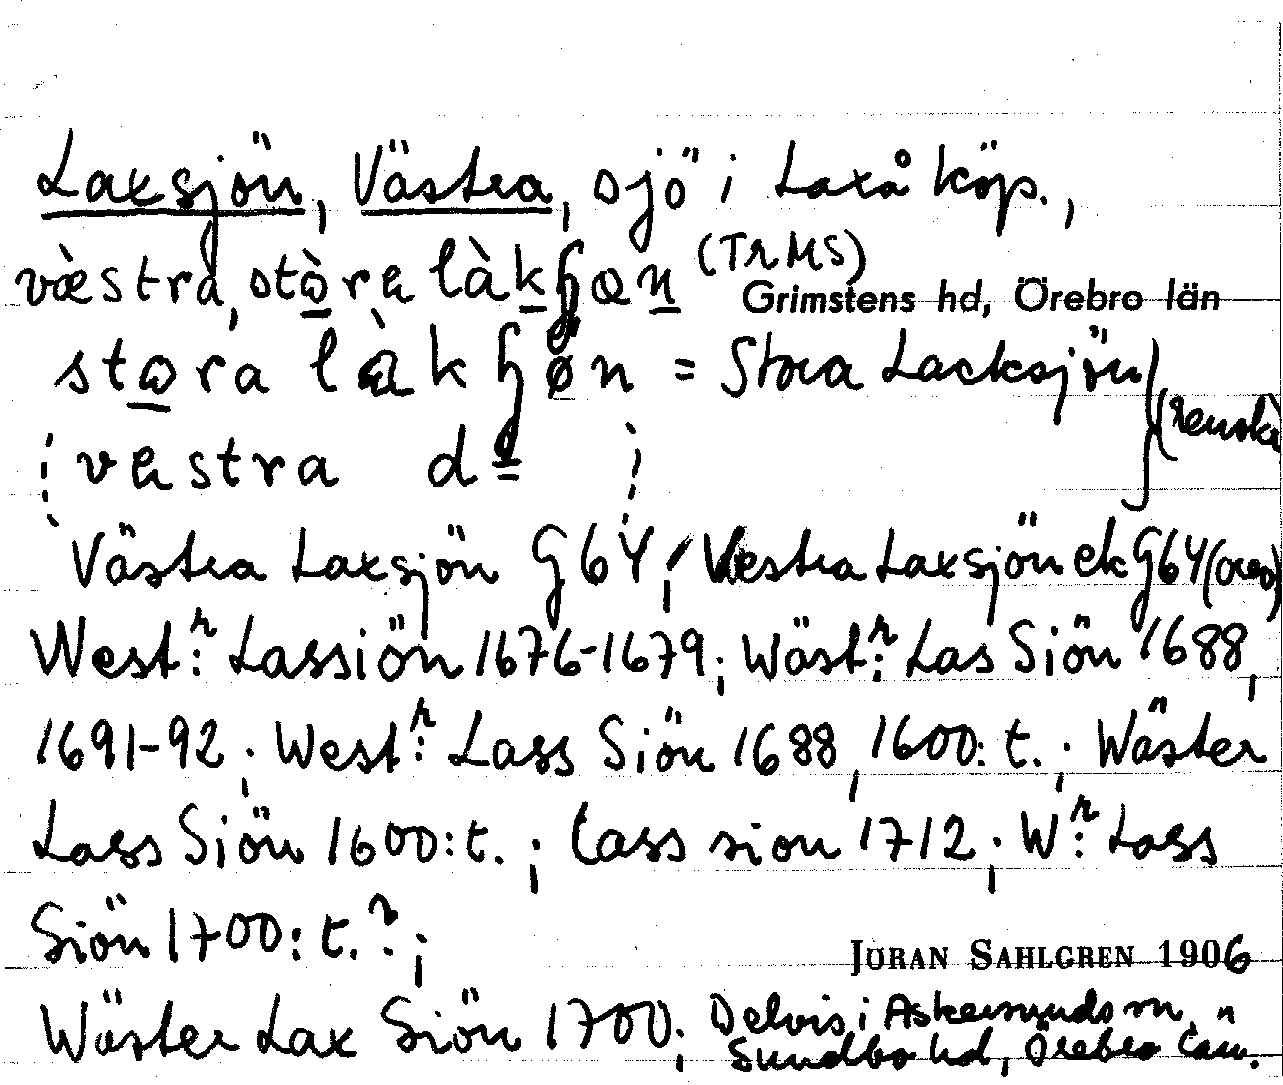 Laxsjön, Västra, sjö i Laxå köp.,
væstra, stora làkʃøn (TrMS)
Grimstens hd, Örebro län
stora làkʃøn = Stora Lacksjön
(væstra d=) (svenska
Västra Laxsjön G64; Vestra Laxsjön ek G64
West:r Lassiön 1676-1679; Wäst:r Las Siön 1688,
1691-92; West:r Lass Siön 1688, 1600:t.; Wäster
Lass Siön 1600:t.; Lass sion 1712; W:r Lass
Siön 1700:t.?;
JÖRAN SAHLGREN 1906
Wäster Lax Siön 1700; Delvis i Askersunds sn,
Sundbo hd, Örebro län.